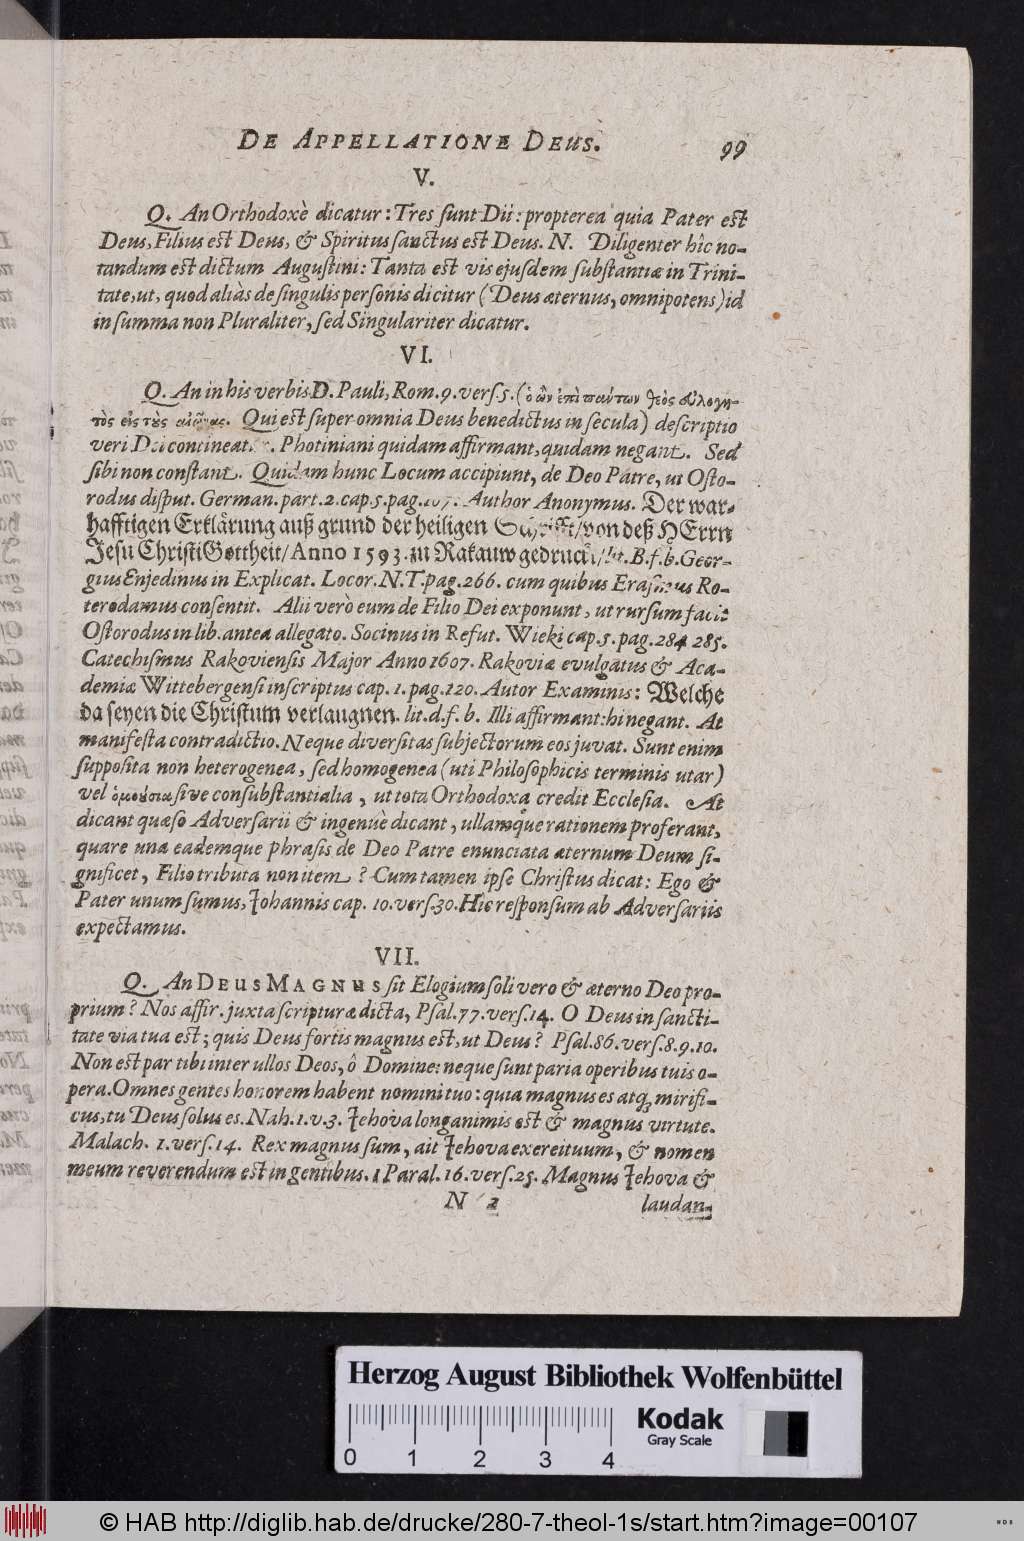 DE APPELLATIONE DEUS. 99
V.
Q. An Orthodoxè dicatur: Tres sunt Dii: propterea quia Pater est
Deus, Filius est Deus, & Spiritus sanctus est Deus. N. Diligenter hîc no-
tandum est dictum Augustini: Tanta est vis ejusdem substantiæ in Trini-
tate, ut, quod aliàs de singulis personis dicitur (Deus æternus, omnipotens) id
in summa non Pluraliter, sed Singulariter dicatur.
VI.
Q. An in his verbis D. Pauli, Rom. 9. vers. 5. (ὁ ὢν ἐπὶ πάντων θεὸς εὐλογη-
τὸς εἰς τοὺς αἰῶνας. Qui est super omnia Deus benedictus in secula) descriptio
veri Dei contineatur. Photiniani quidam affirmant, quidam negant. Sed
sibi non constant. Quidam hunc Locum accipiunt, de Deo Patre, ut Osto-
rodus disput. German. part. 2. cap. 5. pag. Author Anonymus. Der war-
hafftigen Erklärung auß grund der heiligen Schrifft/ von deß HErrn
Jesu Christi Gottheit/ Anno 1593. zu Rakauw gedruckt/ lit. B. f. b. Geor-
gius Enjedinus in Explicat. Locor. N. T. pag. 266. cum quibus Erasmus Ro-
terodamus consentit. Alii verò eum de Filio Dei exponunt, ut rursum facit
Ostorodus in lib. antea allegato. Socinus in Refut. Wieki cap. 5. pag. 284 285.
Catechismus Rakoviensis Major Anno 1607. Rakoviæ evulgatus & Aca-
demiæ Wittebergensi inscriptus cap. 1. pag. 120. Autor Examinis: Welche
da seyen die Christum verlaugnen. lit. d. f. b. Illi affirmant: hi negant. At
manifesta contradictio. Neque diversitas subjectorum eos juvat. Sunt enim
supposita non heterogenea, sed homogenea (uti Philosophicis terminis utar)
vel ὁμοούσια sive consubstantialia, ut tota Orthodoxa credit Ecclesia. At
dicant quæso Adversarii & ingenuè dicant, ullamque rationem proferant,
quare una eademque phrasis de Deo Patre enunciata æternum Deum si-
gnificet, Filio tributa non item? Cum tamen ipse Christus dicat: Ego &
Pater unum sumus, Johannis cap. 10. vers. 30. Hic responsum ab Adversariis
expectamus.
VII.
Q. An DEUS MAGNUS sit Elogium soli vero & æterno Deo pro-
prium? Nos affir. juxta scripturæ dicta, Psal. 77. vers. 14. O Deus in sancti-
tate via tua est; quis Deus fortis magnus est, ut Deus? Psal. 86. vers. 8. 9. 10.
Non est par tibi inter ullos Deos, ô Domine: neque sunt paria operibus tuis o-
pera. Omnes gentes honorem habent nomini tuo: quia magnus es atq; mirifi-
cus, tu Deus solus es. Nah. 1. v. 3. Jehova longanimis est & magnus virtute.
Malach. 1. vers. 14. Rex magnus sum, ait Jehova exereituum, & nomen
meum reverendum est in gentibus. 1 Paral. 16. vers. 25. Magnus Jehova &
N 2 laudan-
Herzog August Bibliothek Wolfenbüttel
Kodak
Gray Scale
0 1 2 3 4
© HAB http://diglib.hab.de/drucke/280-7-theol-1s/start.htm?image=00107